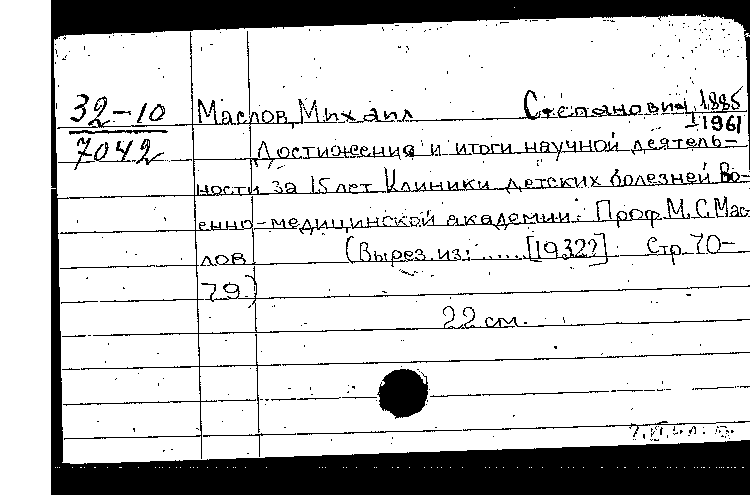 32-10
7042
Маслов, Михаил Степанович, 1885
-1961
Достижения и итоги научной деятель-
ности за 15 лет Клиники детских болезней Во-
енно-медицинской академии. Проф. М.С. Мас-
лов. (Вырез. из: ..... [1932?] Стр. 70-
79.)
22 см.